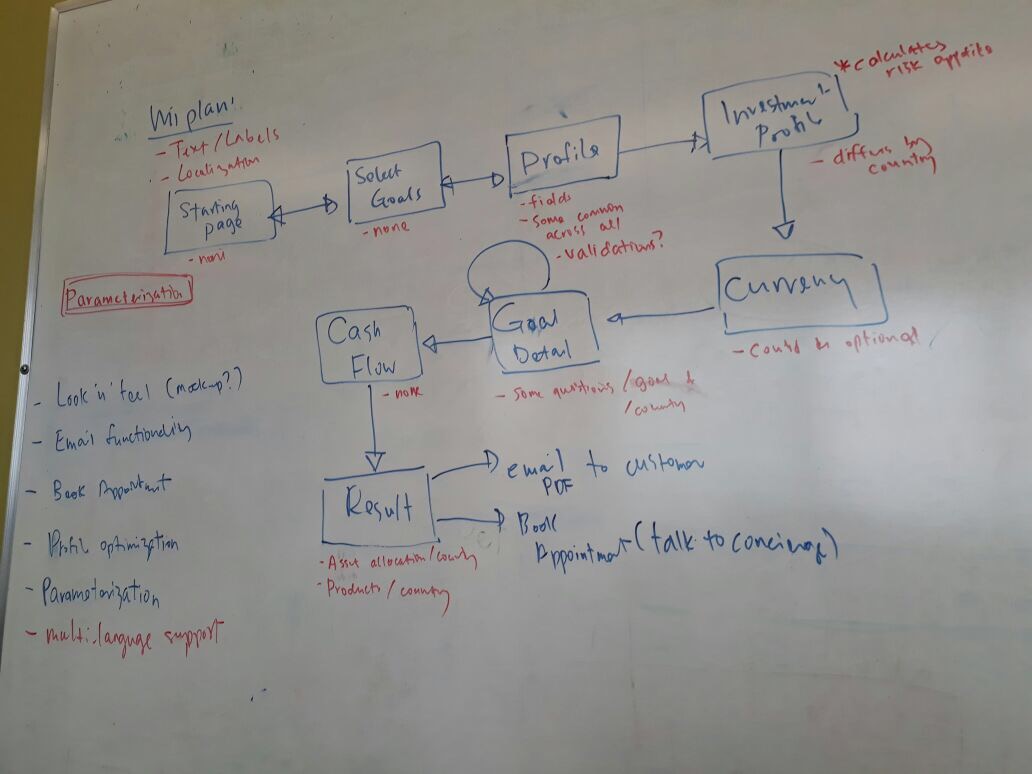 Wiplan:
- Text/Labels
- Localization
Starting
page
- none
Select
Goals
- none
Profile
- fields
- Some common
across all
- validations?
Investment
Profile
*calculates
risk appetite
- differs by
country
Currency
- Could be optional
Goal
Detail
- Some questions/goal &
/country
Cash
Flow
- none
Result
- Asset allocation/country
- Products/country
email to customer
PDF
Book
Appointment (talk to concierge)
Parameterization
- Look 'n' feel (mockup?)
- Email functionality
- Book Appointment
- Profil optimization
- Parameterization
- multi-languge support